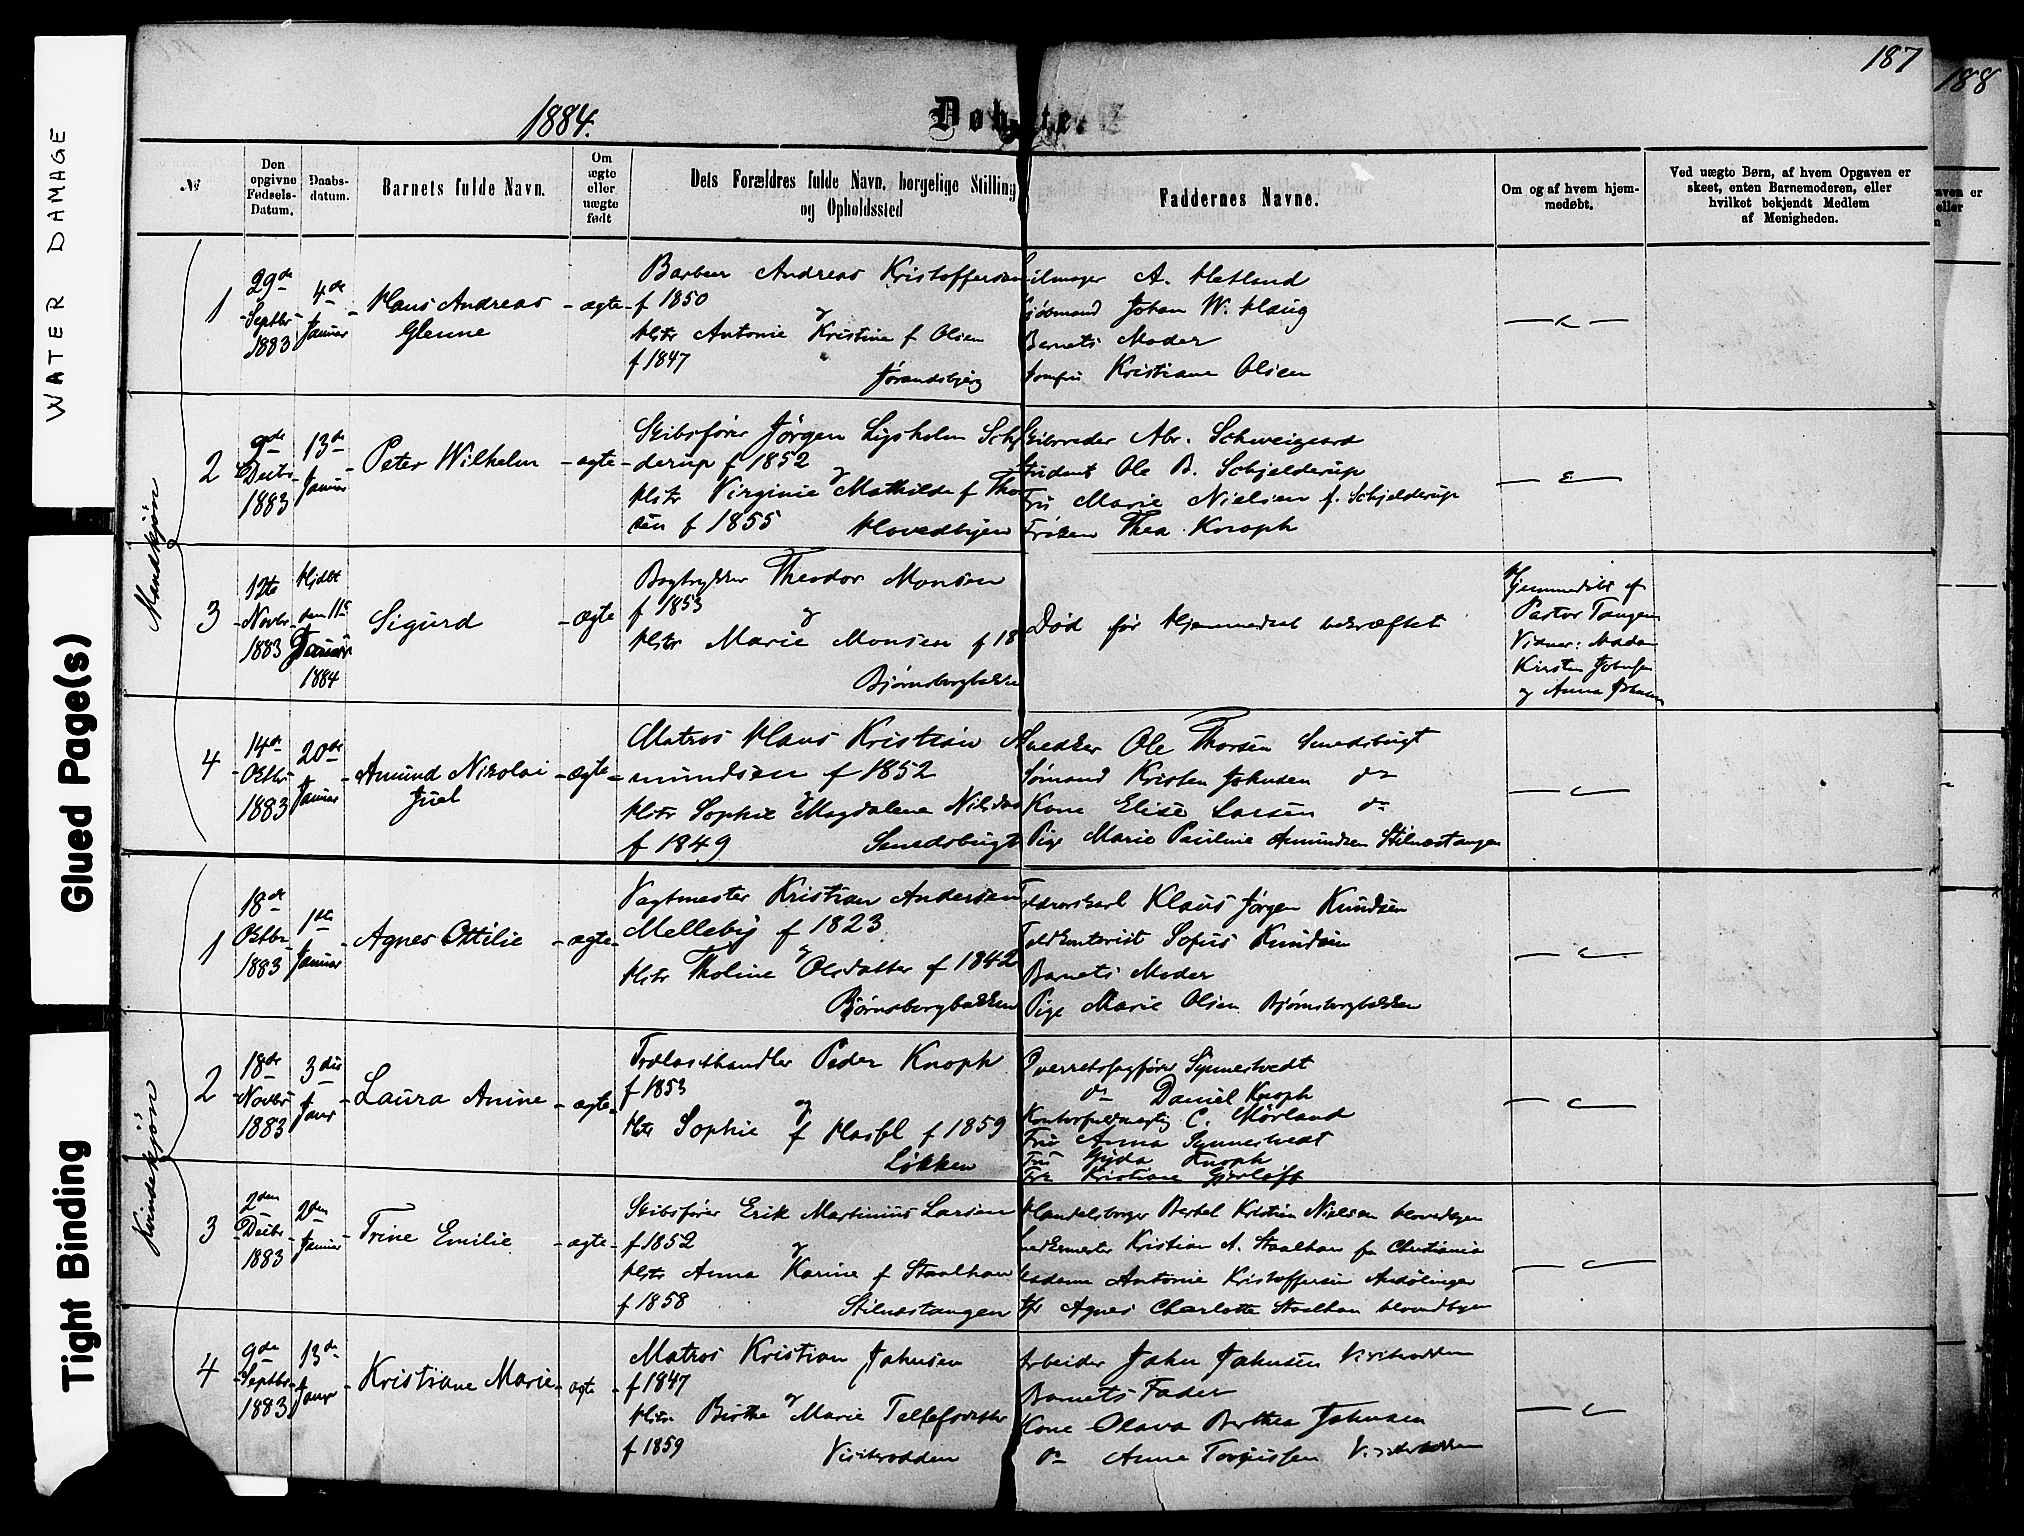 187
188
1884.
Døbte.
WATER DAMAGE
Glued Page(s)
Tight Binding
№
Den opgivne Fødsels-Datum.
Daabs-datum.
Barnets fulde Navn.
Om ægte eller uægte født
Dets Forældres fulde Navn, borgelige Stilling og Opholdssted
Faddernes Navne.
Om og af hvem hjem-medøbt.
Ved uægte Børn, af hvem Opgaven er
skeet, enten Barnemoderen, eller
hvilket bekjendt Medlem
af Menigheden.
Mandkjøn
1
29de Septbr 1883
4de Januar
Hans Andreas
Glenne
ægte
Barbeer Andreas Kristoffersen
f 1850
&
Hstr Antonie Kristine f Olsen
f 1847
Jørandsbjerg
A. Hetland
Johan W. Haug
Barnets Moder
Jomfru Kristiane Olsen
2
9de Decbr 1883
13de Januar
Peter Wilhelm
ægte
Skibsfører Jørgen Lysholm Schj
derup f 1852
&
Hstr Virginie Mathilde f Tho
sen f 1855 Hovedbyen
Skibsreder Abr. Schweigaard
Student Ole B. Schjelderup
Fru Marie Nielsen f. Schjelderup
Frøken Thea Knoph
3
12te Novbr 1883
Hjdbt den 11te Januar 1884
Sigurd
ægte
Bogtrykker Theodor Monsen
f 1853
&
Hstr Marie Monsen f 18
Bjørnsbergbakken
Død før Hjemmedaab bekræftet
Hjemmedøbt af
Pastor Tangen
Vidner: Madam
Kirsten Johnsen
og Anna Johnsen
4
14de Oktbr 1883
20de Januar
Amund Nikolai
Juel
ægte
Matros Hans Kristian A
mundsen f 1852
&
Hstr Sophie Magdalene Nilsdat
f 1849 Smedsbugt
Snedker Ole Thorsen Smedsbugt
Sømand Kristen Johnsen do
Kone Elise Larsen do
Pige Marie Pauline Amundsen Stilnestangen
Kvindekjøn
1
18de Oktbr 1883
1ste Januar
Agnes Ottilie
ægte
Vagtmester Kristian Andersen
Melleby f 1823
&
Hstr Tholine Olsdatter f 1842
Bjørnsbergbakken
Toldrorskarl Klaus Jørgen Knudsen
Toldkontorist Sofus Knudsen
Barnets Moder
Pige Marie Olsen Bjørnsbergbakken
2
18de Novbr 1883
3die Janr
Laura Anine
ægte
Trælasthandler Peder Knoph
f 1853
&
Hstr Sophie f Hasfl f 1859
Løkken
Overretssagfører Synnestvedt
do Daniel Knoph
C. Mørland
Fru Anna Synnestvedt
Fru Gyda Knoph
Frk Kristiane Gjerløff
3
2den Decbr 1883
2den Januar
Trine Emilie
ægte
Skibsfører Erik Martinius Larsen
f 1852
&
Hstr Anna Karine f Staalhan
f 1858 Stilnestangen
Handelsborger Bertel Kristian Nielsen Hovedbyen
Snedkermester Kristian A. Staalhan fra Christiania
Madame Antonie Kristoffersen
Jfr Agnes Charlotte Staalhan Hovedbyen
4
9de Septbr 1883
13de Janr
Kristiane Marie
ægte
Matros Kristian Johnsen
f 1847
&
Hstr Birthe Marie Tellefsdatter
f 1859 Visiterodden
Arbeider John Johnsen Visiterodden
Barnets Fader
Kone Olava Berthea Johnsen
do Anne Torgussen Visiterodden